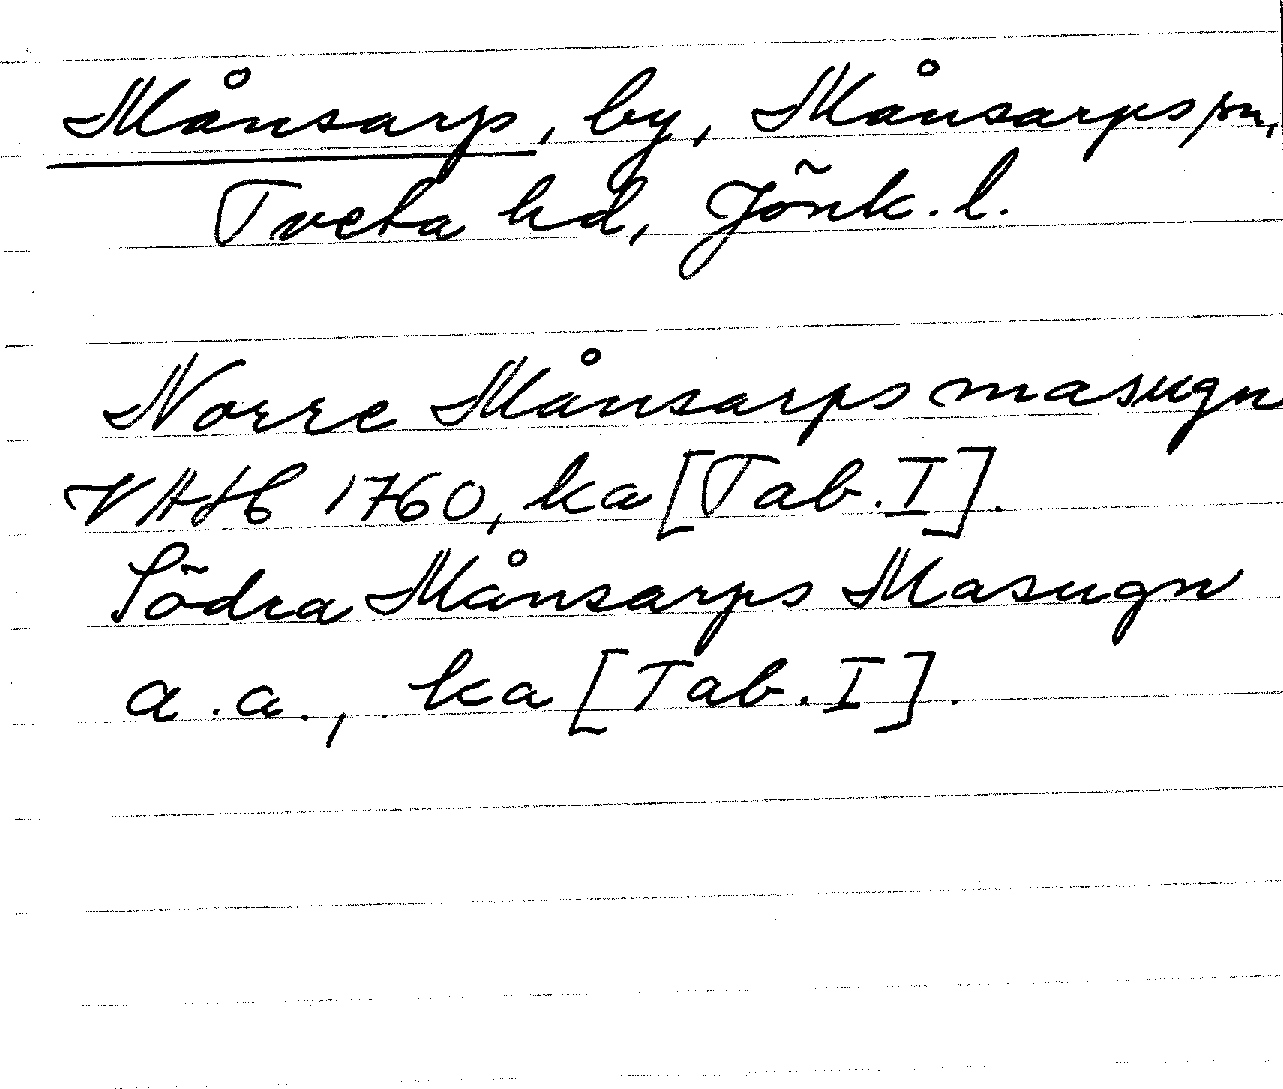 Månsarp, by, Månsarps sn,
Tveta hd, Jönk. l.
Norre Månsarps masugn
VAH 1760, ka [Tab. I].
Södra Månsarps Masugn
a.a., ka [Tab. I].